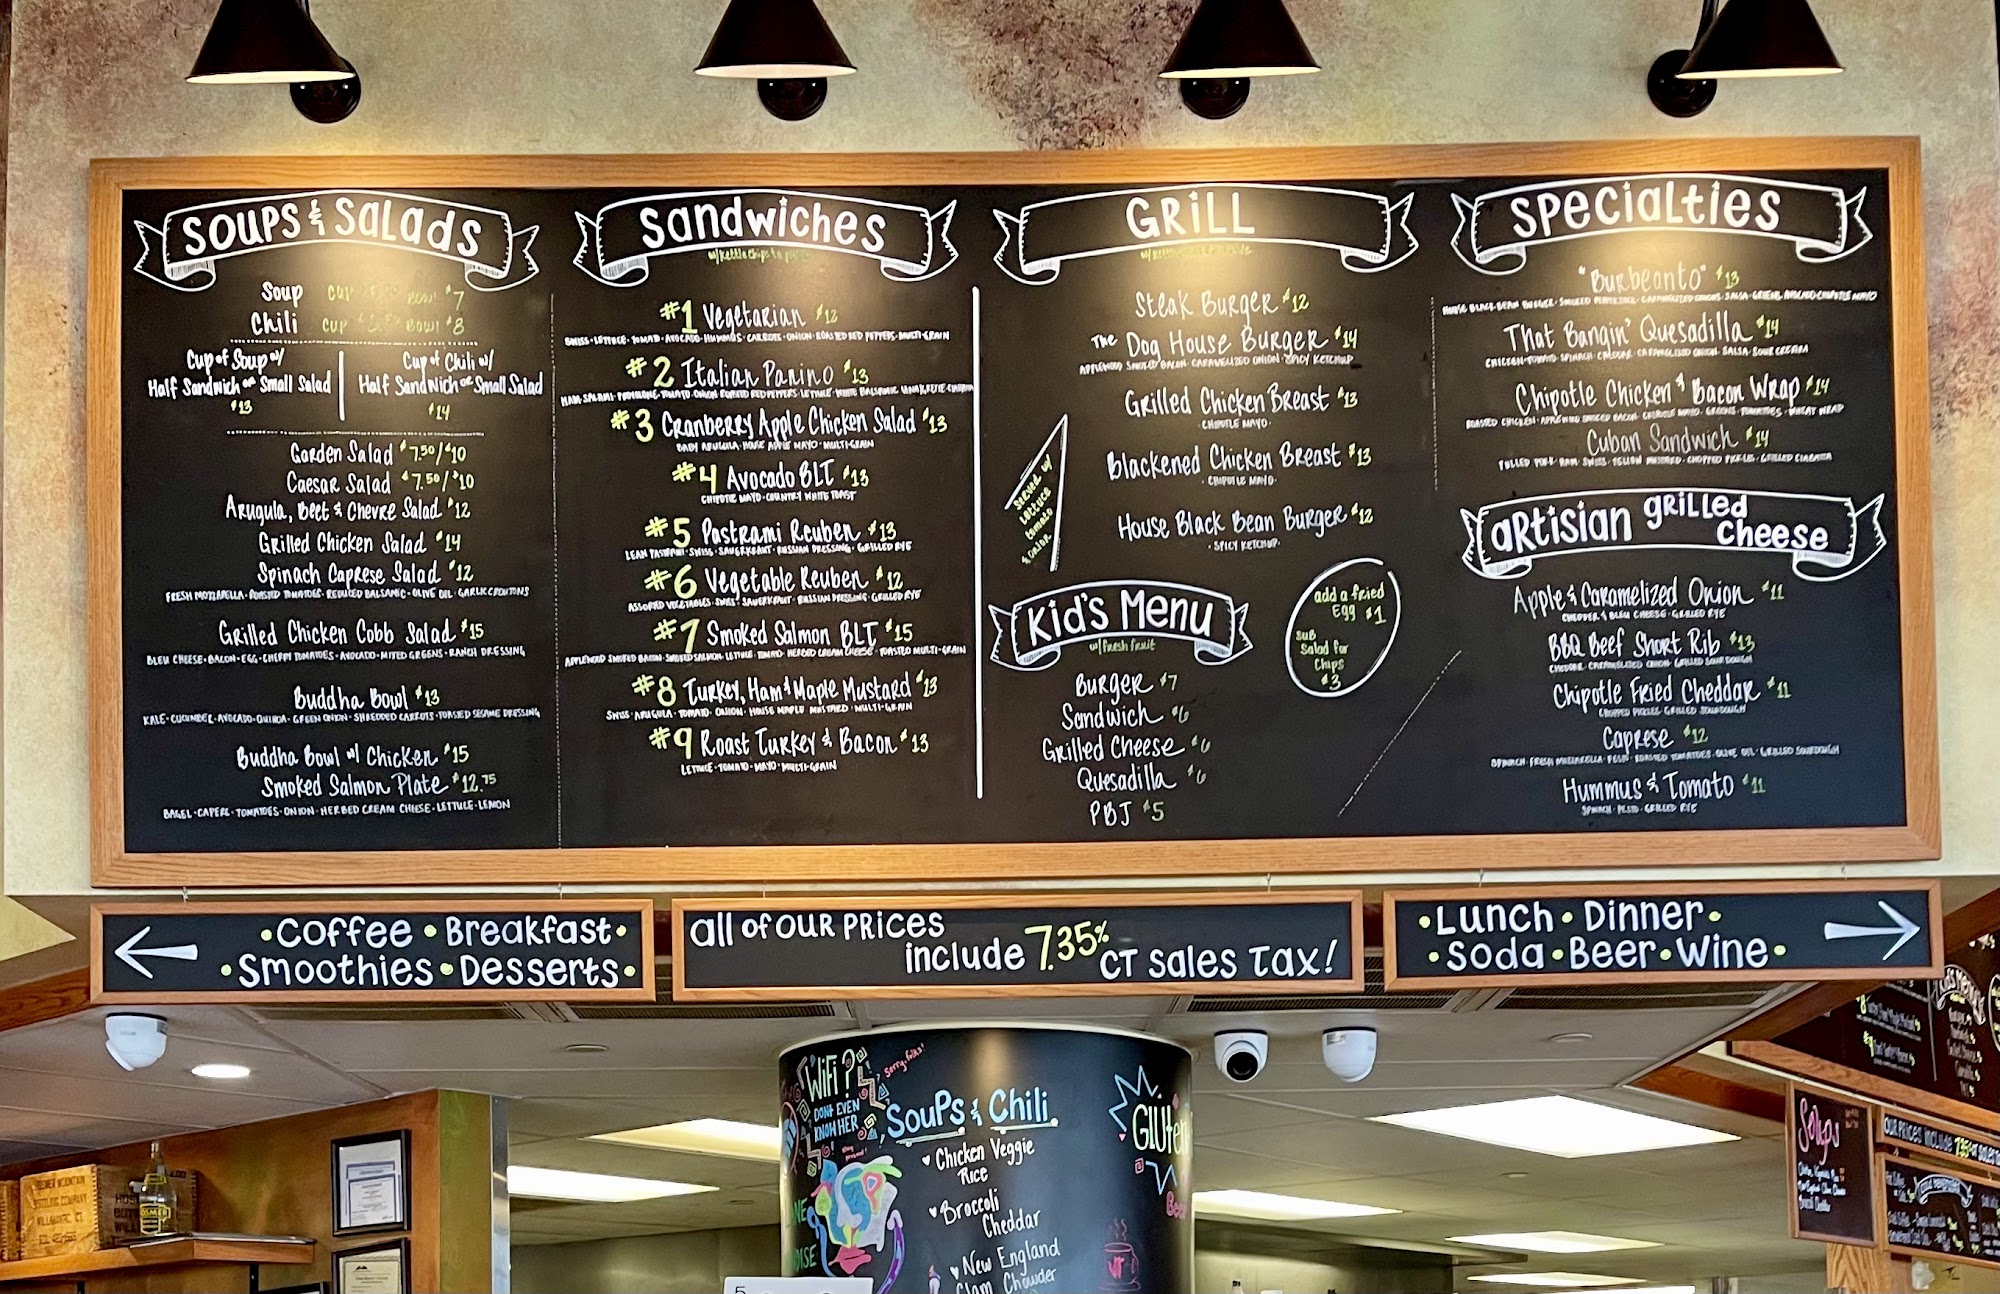 Soups & Salads
Soup cup bowl $7
Chili cup bowl $8
Cup of Soup w/
Half Sandwich or Small Salad
$13
Cup of Chili w/
Half Sandwich or Small Salad
$14
Garden Salad $7.50/$10
Caesar Salad $7.50/$10
Arugula, Beet & Chevre Salad $12
Grilled Chicken Salad $14
Spinach Caprese Salad $12
FRESH MOZZARELLA · ROASTED TOMATOES · REDUCED BALSAMIC · OLIVE OIL · GARLIC CROUTONS
Grilled Chicken Cobb Salad $15
BLEU CHEESE · BACON · EGG · CHERRY TOMATOES · AVOCADO · MIXED GREENS · RANCH DRESSING
Buddha Bowl $13
KALE · CUCUMBER · AVOCADO · QUINOA · GREEN ONION · SHREDDED CARROTS · TOASTED SESAME DRESSING
Buddha Bowl w/ Chicken $15
Smoked Salmon Plate $12.75
BAGEL · CAPERS · TOMATOES · ONION · HERBED CREAM CHEESE · LETTUCE · LEMON
Sandwiches
w/ kettle chips &
#1 Vegetarian $12
SWISS · LETTUCE · TOMATO · AVOCADO · HUMMUS · CARROTS · ONION · ROASTED RED PEPPERS · MULTI-GRAIN
#2 Italian Panino $13
HAM · SALAMI · PROVOLONE · TOMATO · ONION · ROASTED RED PEPPERS · LETTUCE · WHITE BALSAMIC VINAIGRETTE · CIABATTA
#3 Cranberry Apple Chicken Salad $13
BABY ARUGULA · HOUSE APPLE MAYO · MULTI-GRAIN
#4 Avocado BLT $13
CHIPOTLE MAYO · COUNTRY WHITE TOAST
#5 Pastrami Reuben $13
LEAN PASTRAMI · SWISS · SAUERKRAUT · RUSSIAN DRESSING · GRILLED RYE
#6 Vegetable Reuben $12
ASSORTED VEGETABLES · SWISS · SAUERKRAUT · RUSSIAN DRESSING · GRILLED RYE
#7 Smoked Salmon BLT $15
APPLEWOOD SMOKED BACON · SMOKED SALMON · LETTUCE · TOMATO · HERBED CREAM CHEESE · TOASTED MULTI-GRAIN
#8 Turkey, Ham & Maple Mustard $13
SWISS · ARUGULA · TOMATO · ONION · HOUSE MAPLE MUSTARD · MULTI-GRAIN
#9 Roast Turkey & Bacon $13
LETTUCE · TOMATO · MAYO · MULTI-GRAIN
Grill
Steak Burger $12
The Dog House Burger $14
APPLEWOOD SMOKED BACON · CARAMELIZED ONION · SPICY KETCHUP
Grilled Chicken Breast $13
CHIPOTLE MAYO
Blackened Chicken Breast $13
· CHIPOTLE MAYO ·
House Black Bean Burger $12
· SPICY KETCHUP ·
served w/
lettuce
tomato
& onion
Kid's Menu
w/ fresh fruit
Burger $7
Sandwich $6
Grilled Cheese $6
Quesadilla $6
PBJ $5
add a fried
Egg $1
sub
Salad for
Chips
$3
Specialties
"Burbeanto" $13
HOUSE BLACK BEAN BURGER · SMOKED PEPPERJACK · CARAMELIZED ONIONS · SALSA · GREENS · AVOCADO · CHIPOTLE MAYO
That Bangin' Quesadilla $14
CHICKEN · TOMATO · SPINACH · CHEDDAR · CARAMELIZED ONION · SALSA · SOUR CREAM
Chipotle Chicken & Bacon Wrap $14
ROASTED CHICKEN · APPLEWOOD SMOKED BACON · CHIPOTLE MAYO · GREENS · TOMATOES · WHEAT WRAP
Cuban Sandwich $14
PULLED PORK · HAM · SWISS · YELLOW MUSTARD · CHOPPED PICKLES · GRILLED CIABATTA
Artisian Grilled Cheese
Apple & Caramelized Onion $11
CHEDDER & BLEU CHEESE · GRILLED RYE
BBQ Beef Short Rib $13
CHEDDAR · CARAMELIZED ONION · GRILLED SOURDOUGH
Chipotle Fried Cheddar $11
CHOPPED PICKLES · GRILLED SOURDOUGH
Caprese $12
SPINACH · FRESH MOZZARELLA · PESTO · ROASTED TOMATOES · OLIVE OIL · GRILLED SOURDOUGH
Hummus & Tomato $11
SPINACH · PESTO · GRILLED RYE
· Coffee · Breakfast ·
· Smoothies · Desserts ·
All of our prices
include 7.35% CT sales tax!
· Lunch · Dinner ·
· Soda · Beer · Wine ·
WiFi?
DON'T EVEN
KNOW HER
Sorry, folks!
Soups & Chili
Chicken Veggie
Rice
Broccoli
Cheddar
New England
Clam Chowder
Soups